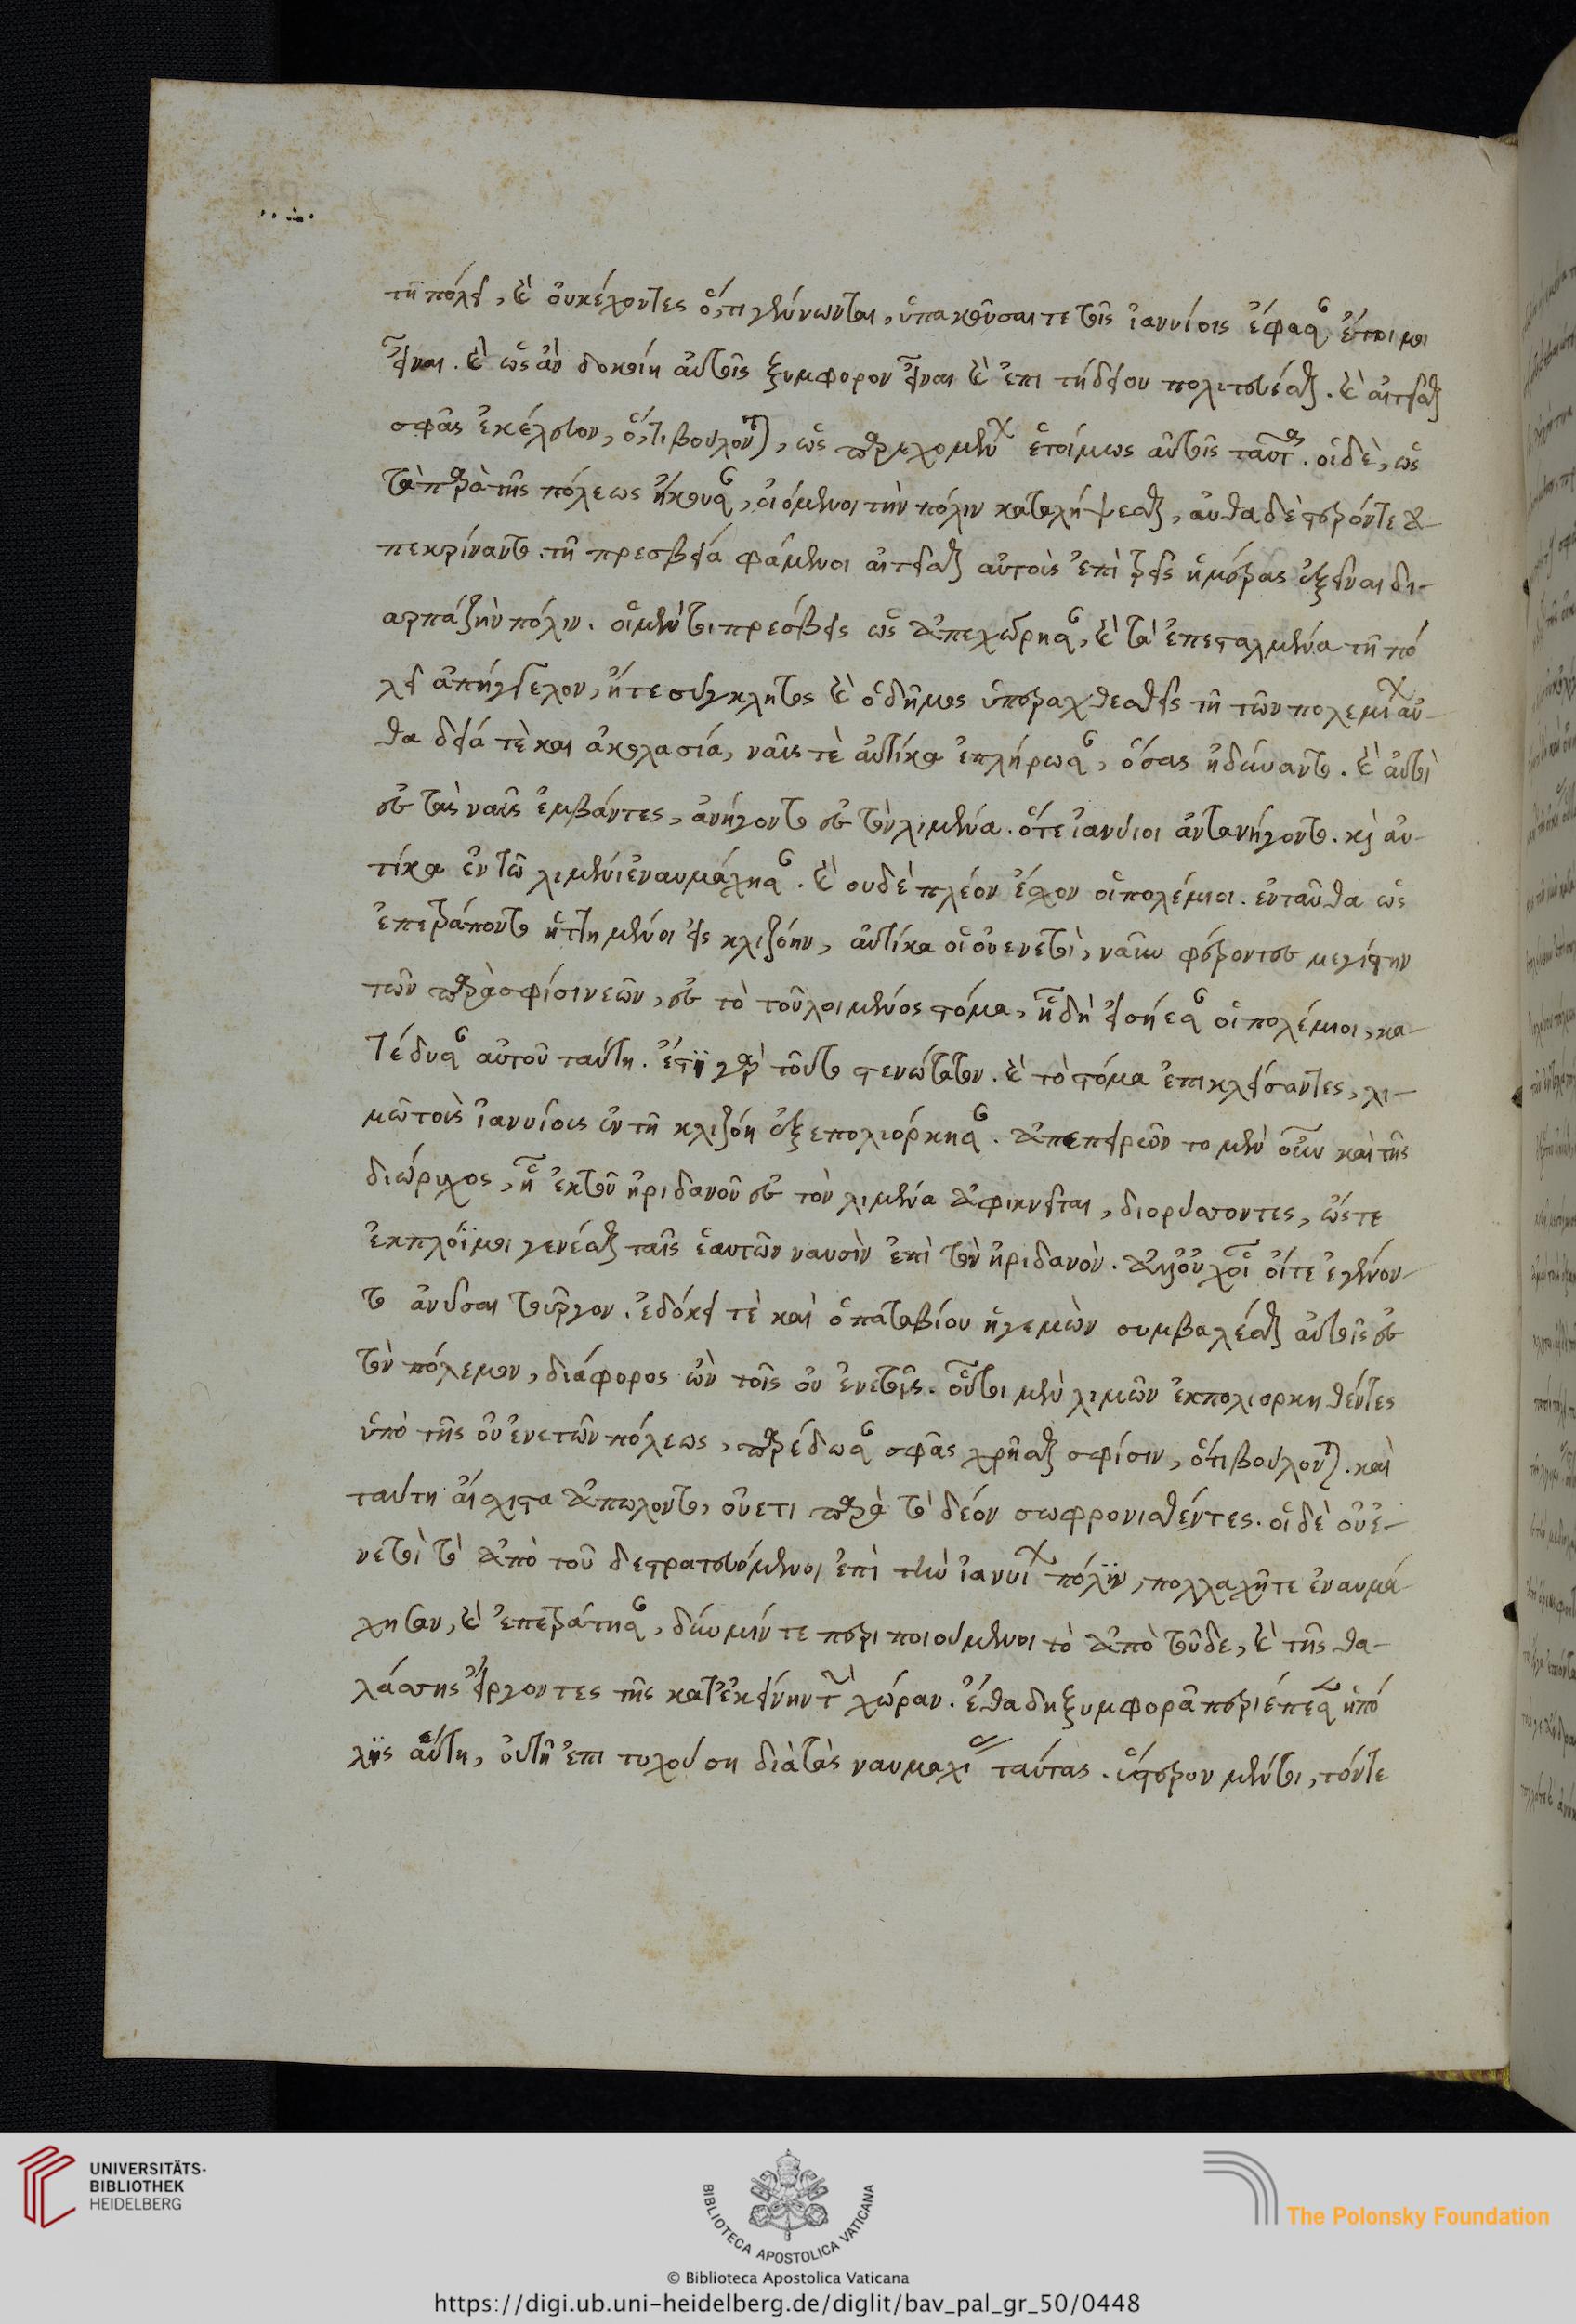 τῇ πόλει, καὶ οὐκ έχοντες ὅ,τι γένωνται, ὑπακοῦσαι τε τοῖς ἰανυίοις ἔφασαν ἕτοιμοι
εἶναι. καὶ ὡς ἂν δοκοίη αὐτοῖς ξυμφορον εἶναι καὶ ἐπιτήδειον πολιτεύεσθαι. καὶ αἰτεῖσθαι
σφᾶς ἐκέλευον, ὅ,τι βούλονται, ὡς παρεχομένων ἑτοίμως αὐτοῖς ταῦτα. οἱ δὲ, ὡς
τὰ παρὰ τῆς πόλεως ἤκουσαν, οἰόμενοι τὴν πόλιν καταλήψεσθαι, αὐθαδέστερόν τε ἀ-
πεκρίναντο τῇ πρεσβεία φάμενοι αἰτεῖσθαι αὐτοὶς ἐπὶ τρεῖς ἡμέρας ἐξεῖναι δι-
αρπάζειν πόλιν. οἱ μέντοι πρέσβεις ὡς ἀπεχώρησαν, καὶ τὰ ἐπεσταλμένα τῇ πό
λει ἀπήγγελον, ἥτε σύγκλητος καὶ ὁ δῆμος ὑπεραχθεσθεὶς τῇ τῶν πολεμίων αὐ-
θαδεία τὲ και ἀκολασία, ναῦς τὲ αὐτίκα ἐπλήρωσαν, ὅσας ἠδύναντο. καὶ αὐτοὶ
ἐς τὰς ναῦς ἐμβάντες, ἀνήγοντο ἐς τὸν λιμένα. ὅτε ἰανύιοι ἀντανήγοντο. καὶ αὐ-
τίκα ἐν τῶ λιμένι ἐναυμάχησαν. καὶ ουδὲ πλέον ἔσχον οἱ πολέμιοι. ἐνταῦθα ὡς
ἐπετράποντο ἡττημένοι εἰς κλιζόην, αὐτίκα οἱ οὐενετοὶ, ναῦν φέροντες μεγίστην
τῶν παρὰ σφίσι νεῶν, ἐς τὸ τοῦ λοιμένος στόμα, ἧ δὴ εἰσήεσαν οἱ πολέμιοι, κα-
τέδυσαν αὐτοῦ ταύτη. ἔστϊ γὰρ τοῦτο στενώτατον. καὶ τὸ στόμα ἐπικλείσαντες, λι-
μῶ τοὶς ἰανυίοις ἐν τῆ κλιζόη ἐξεπολιόρκησαν. ἀπεπειρῶντο μὲν οὖν καὶ τῆς
διώριχος, ἧ ἐκ τοῦ ἠριδανοῦ ἐς τὸν λιμένα ἀφικνεῖται, διορύσσοντες, ὥστε
ἐκπλόϊμοι γενέσθαι ταῖς ἑαυτῶν ναυσὶν ἐπὶ τὸν ἠριδανὸν. ἀλλ' οὐχ οἷοί τε ἐγένον-
το ἀνύσαι τοὔργον. ἐδόκει τὲ καὶ ὁ παταβίου ἡγεμὼν συμβαλέσθαι αὐτοῖς ἐς
τὸν πόλεμον, διάφορος ὢν τοῖς οὐενετοῖς. οὗτοι μὲν λιμῶ ἐκπολιορκηθέντες
ὑπὸ τῆς οὐενετῶν πόλεως, παρέδωσαν σφᾶς χρῆσθαι σφίσιν, ὅτι βούλονται. καὶ
ταύτη αἴσχιστα ἀπώλοντο, οὔ ετι παρὰ τὸ δέον σωφρονισθέντες. οἱ δὲ οὐε-
νετοὶ τὸ ἀπὸ τοῦδε στρατευόμενοι ἐπὶ τὴν ἰανυίων πόλϊν, πολλαχῆ τε ἐναυμά
χησαν, καὶ ἐπεκράτησαν, δύναμίν τε περιποιούμενοι τὸ ἀπὸ τοῦδε, καὶ τῆς θα-
λάσσης εἴργοντες τῆς κατ' ἐκείνην τὴν χώραν. ἔνθα δὴ ξυμφορᾶ περιέπεσεν ἡ πό
λϊς αὕτη, οὐκ ἐπιτυχούση διὰ τὰς ναυμαχίας ταύτας. ὕστερον μέντοι, τόντε
UNIVERSITÄTS-
BIBLIOTHEK
HEIDELBERG
BIBLIOTECA APOSTOLICA VATICANA
The Polonsky Foundation
© Biblioteca Apostolica Vaticana
https://digi.ub.uni-heidelberg.de/diglit/bav_pal_gr_50/0448